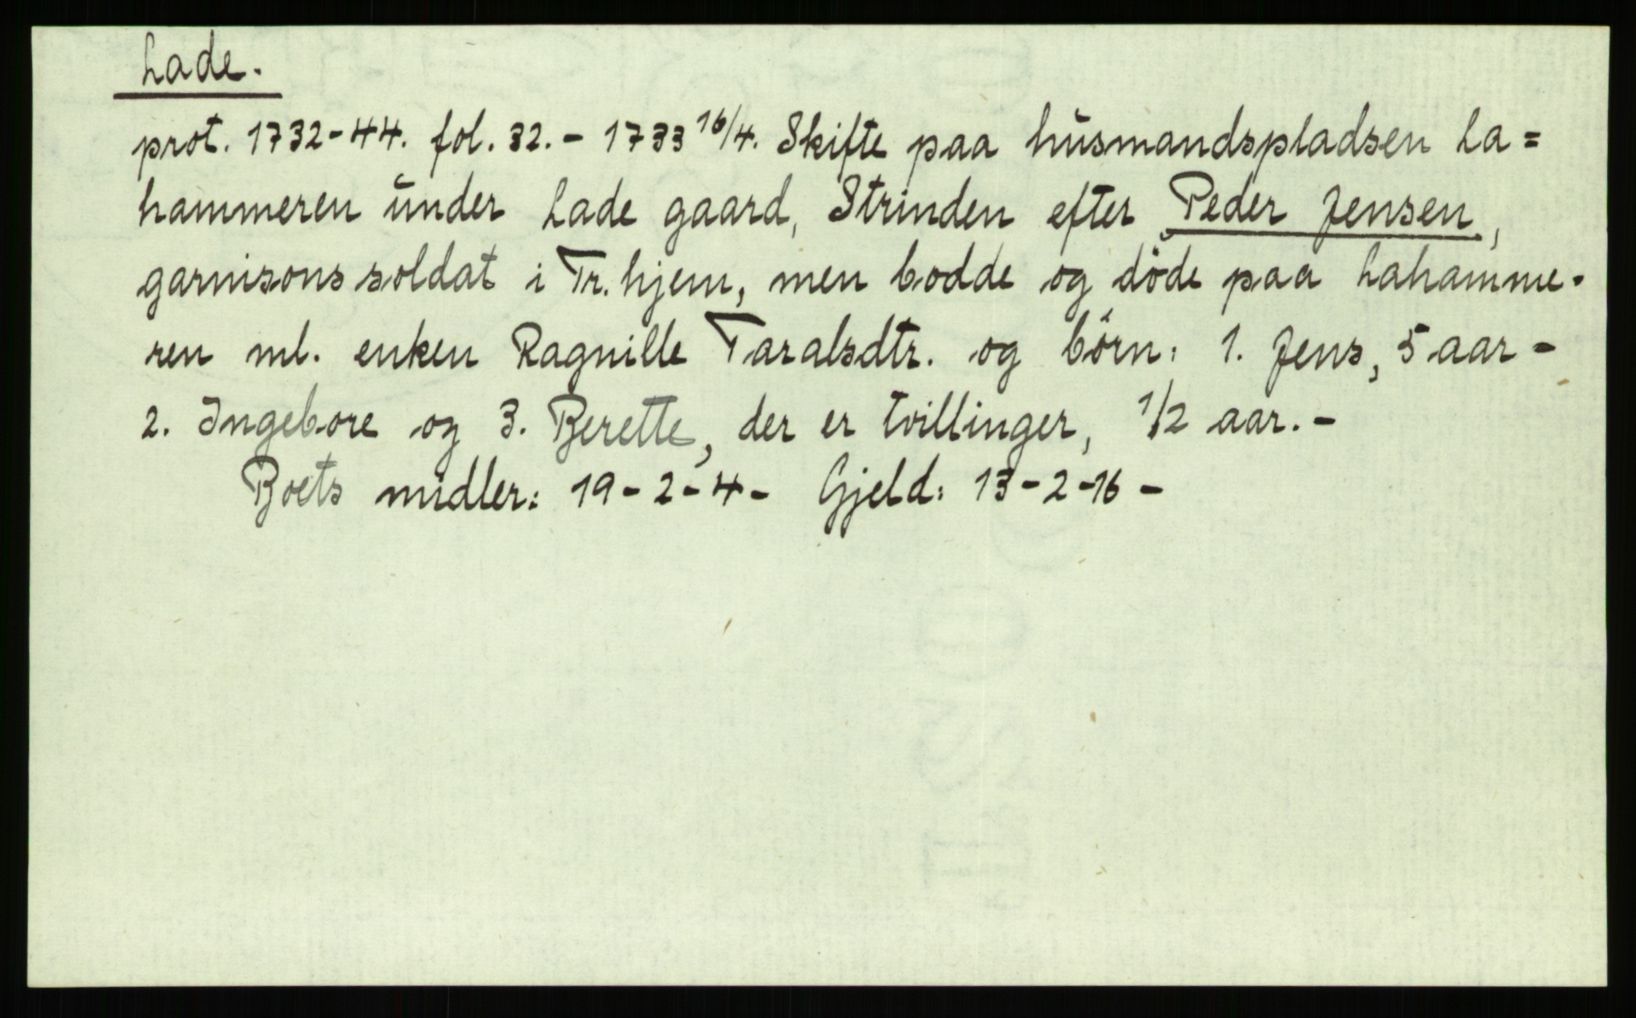 Lade.
prot. 1732-44. fol. 32. - 1733 16/4. Skifte paa husmandspladsen La=
hammeren under Lade gaard, Strinden efter Peder Jensen,
garnisonssoldat i Tr.hjem, men bodde og döde paa Lahamme-
ren ml. enken Ragnille Taralsdtr. og börn: 1. Jens, 5 aar -
2. Ingebore og 3. Berette, der er tvillinger, 1/2 aar. -
Boets midler: 19 - 2 - 4 - Gjeld: 13 - 2 - 16 -